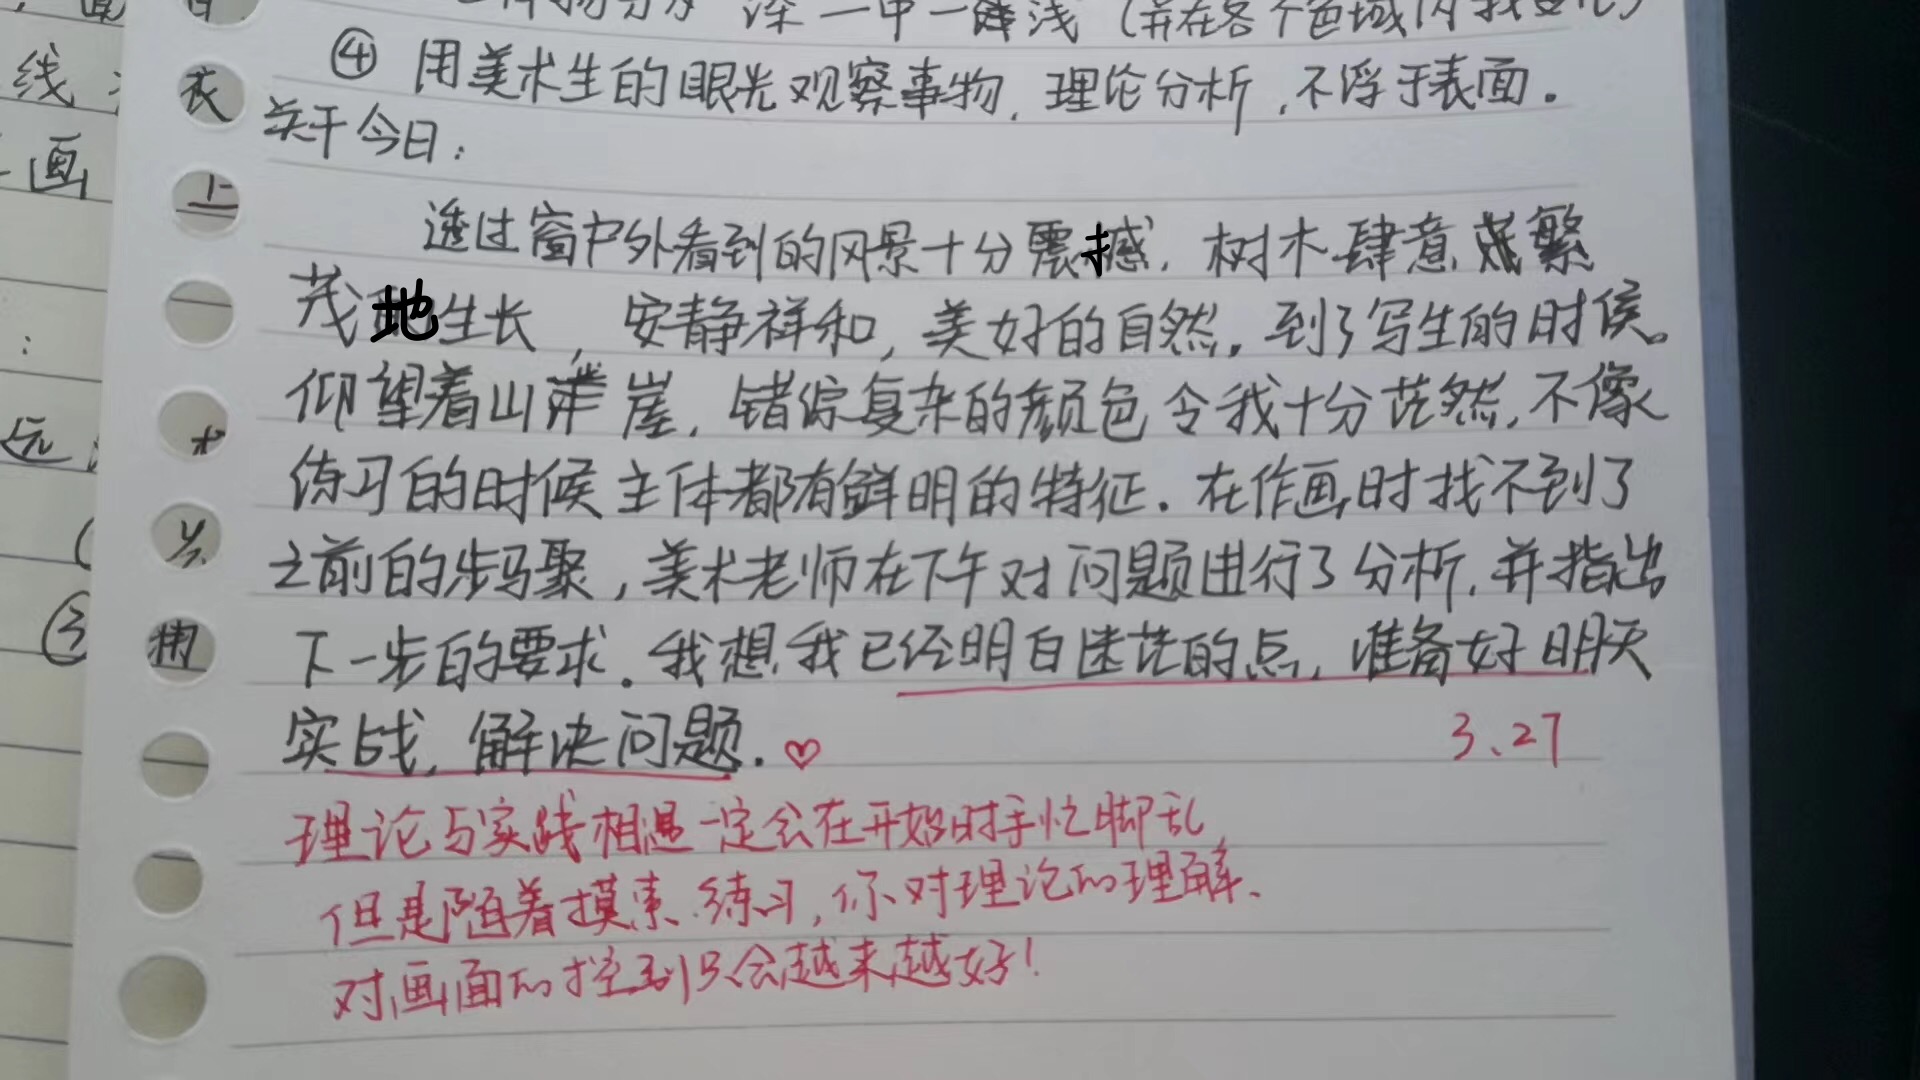 深一中一浅（并在各个色域内找变化）
④ 用美术生的眼光观察事物，理论分析，不浮于表面。
关于今日：
透过窗户外看到的风景十分震撼，树木肆意繁
茂地生长，安静祥和，美好的自然。到了写生的时候。
仰望着山崖，错综复杂的颜色令我十分茫然，不像
练习的时候主体都有鲜明的特征。在作画时找不到了
之前的步骤，美术老师在下午对问题进行了分析，并指出
下一步的要求。我想我已经明白迷茫的点，准备好明天
实战，解决问题。♡
3、27
理论与实践相遇一定会在开始时手忙脚乱，
但是随着摸索、练习，你对理论的理解、
对画面的控制只会越来越好！
线
画
：
远
③
衣
上
术
用